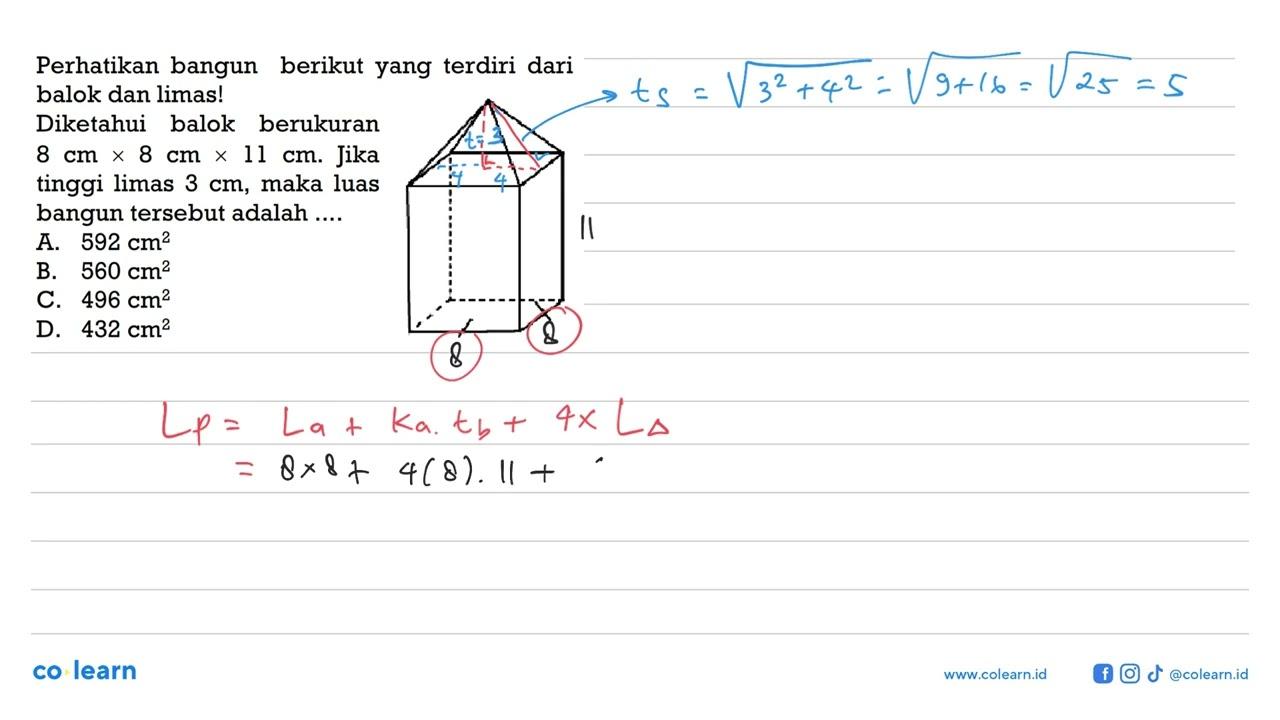 Perhatikan bangun berikut yang terdiri dari
balok dan limas!
Diketahui balok berukuran
8 cm × 8 cm × 11 cm. Jika
tinggi limas 3 cm, maka luas
bangun tersebut adalah ....
A. 592 cm²
B. 560 cm²
C. 496 cm²
D. 432 cm²
t=3
4 4
11
8
8
ts = √3²+4² = √9+16 = √25 = 5
Lp = La + Ka. tb + 4x L△
= 8×8+ 4(8). 11 +
co learn
www.colearn.id
@colearn.id